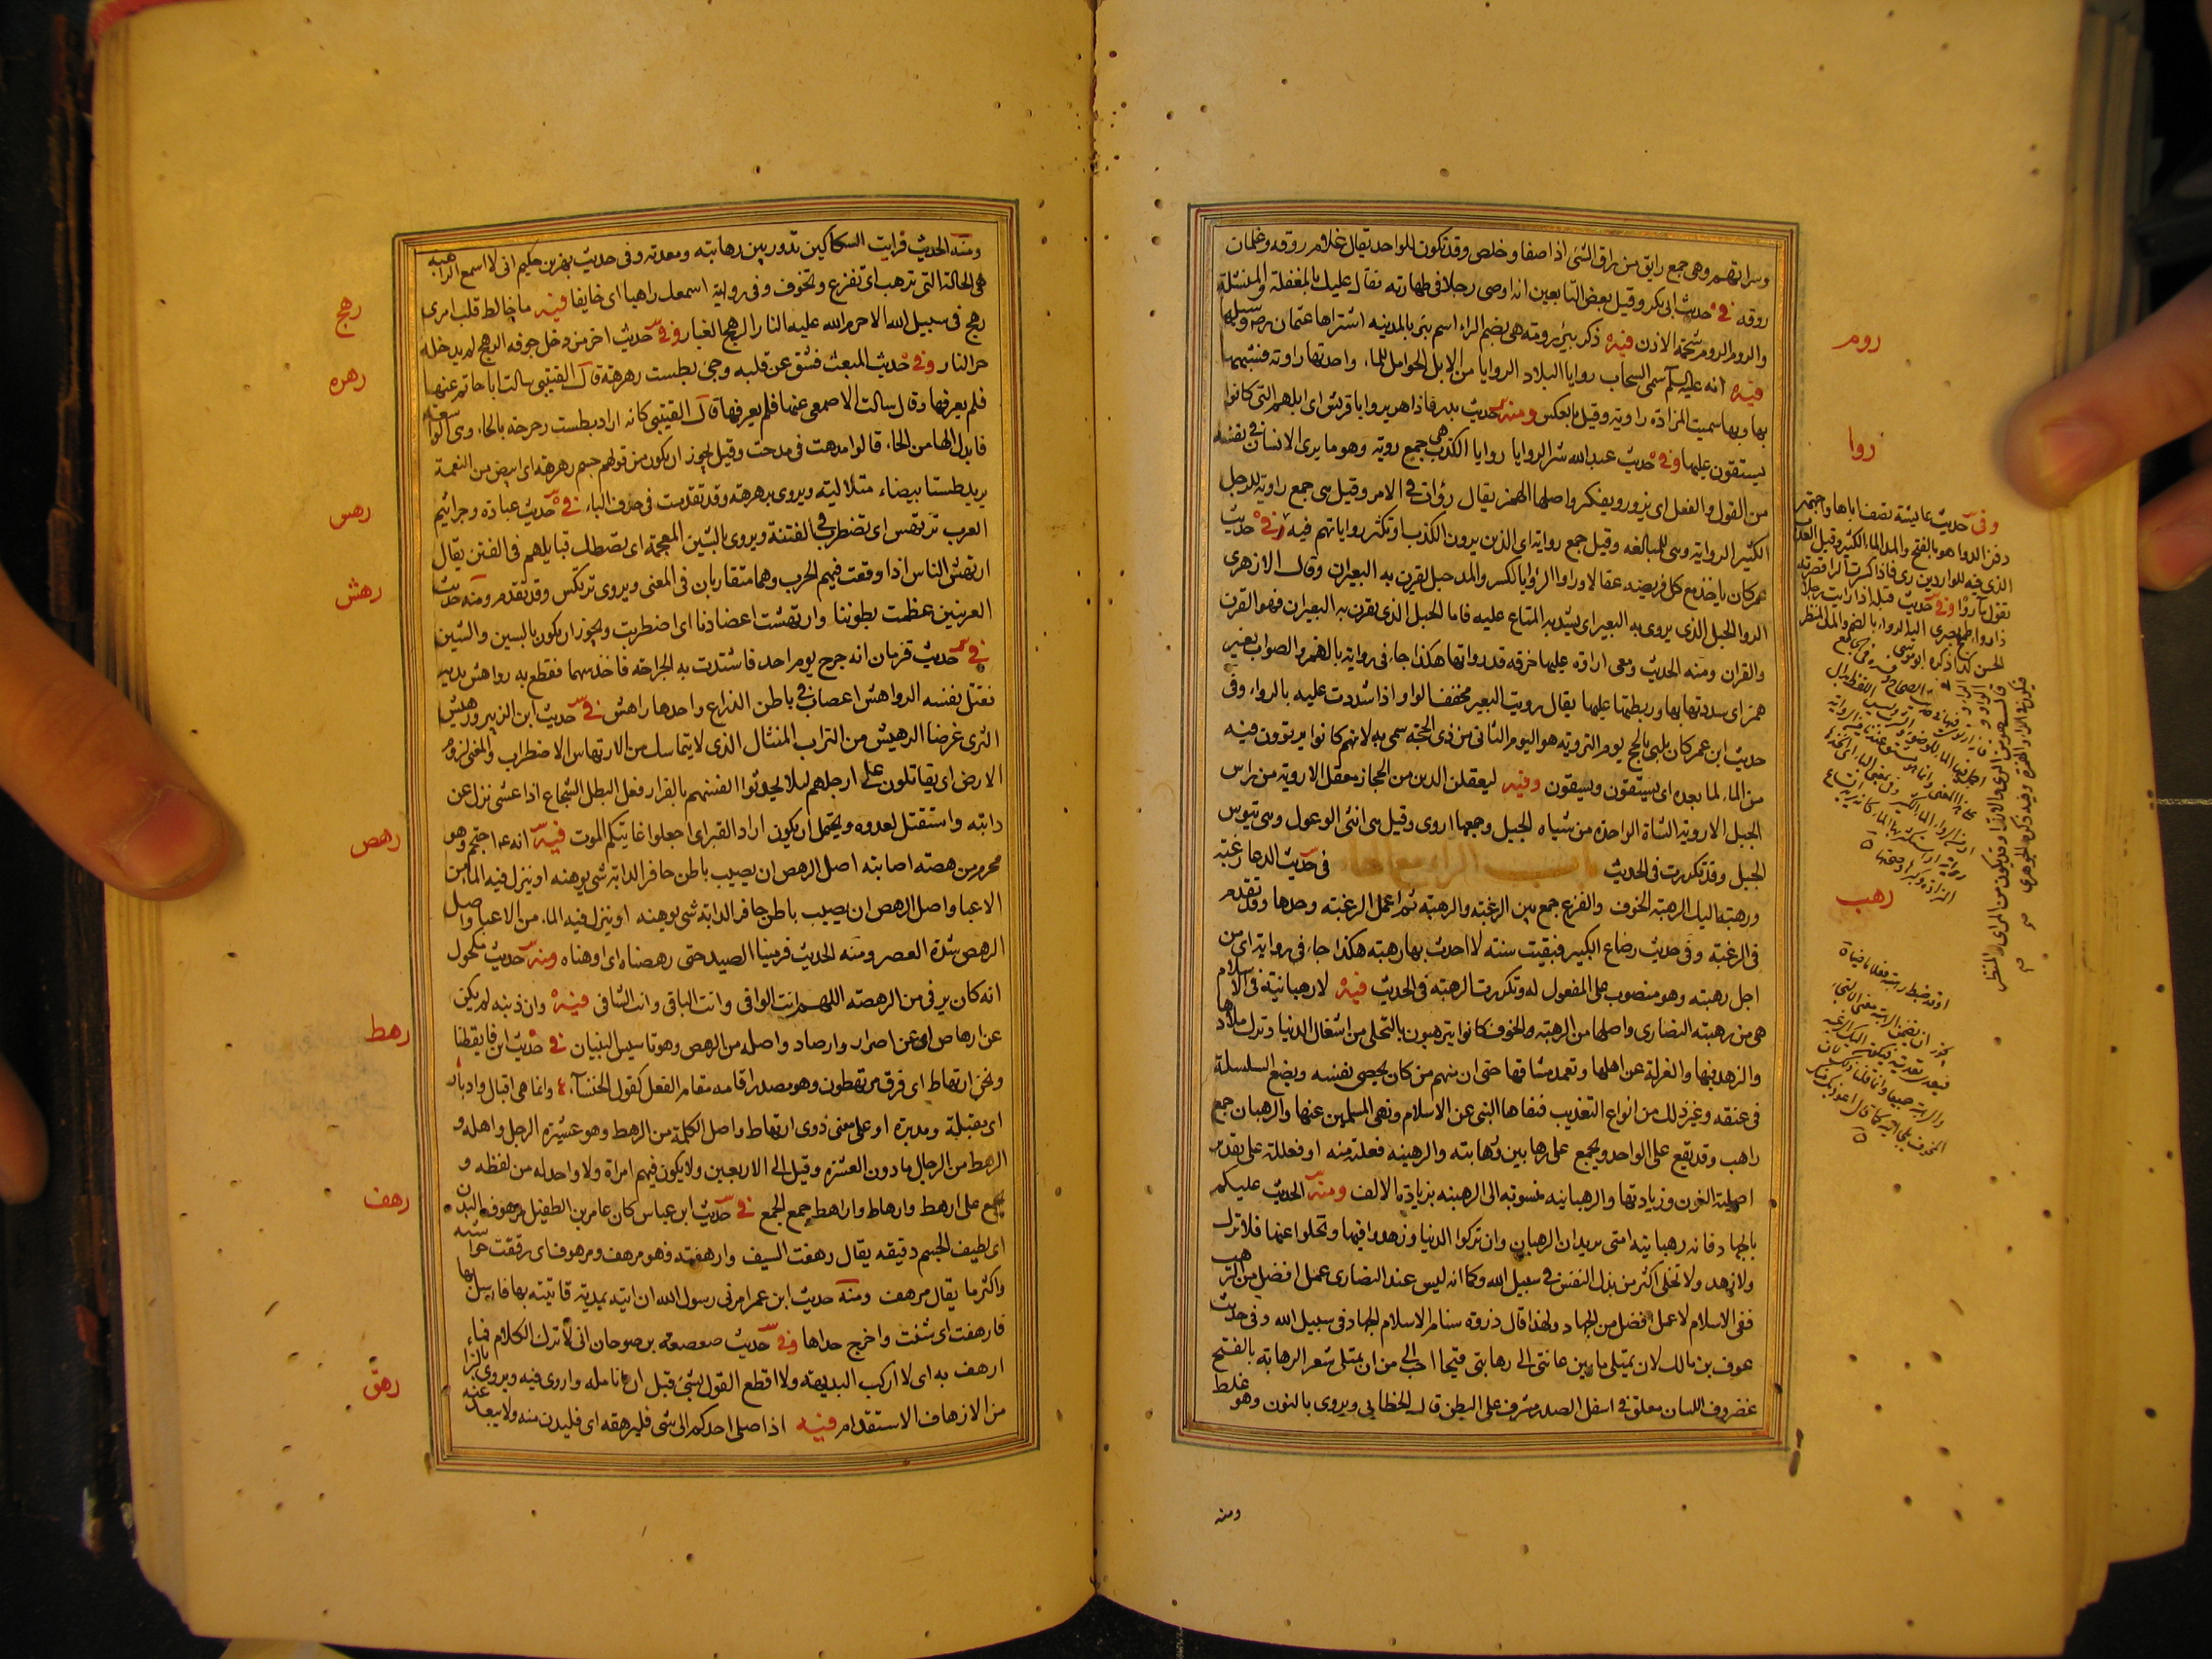 وسراتهم وهى جمع رايق من راق الشئ اذا صفا وخلص وقد تكون للواحد يقال غلام روقه وغلمان
روقه فى حديث ابى بكر وقيل بعض التابعين انه اوصى رجلا فى طهارته فقال عليك بالمغفلة والمنشلة
والروم الروم شحمة الاذن فيه ذكر بئر رومه هى بضم الراء اسم بئر بالمدينه اشتراها عثمان رضه وسبلها
فيه انه عليه السلم سمى السحاب روايا البلاد الروايا من الابل الحوامل للماء واحدتها راويه فشبهها
بها وبها سميت المزادة راويه وقيل بالعكس ومنه حديث بدر فاذا هو بروايا قريش اى ابلهم التى كانوا
يستقون عليها وفى حديث عبد الله شر الروايا روايا الكذب هى جمع رويه وهو ما يرى الانسان فى نفسه
من القول والفعل اى يزور ويفكر واصلها الهمز يقال روأت فى الامر وقيل هى جمع راويه للرجل
الكثير الروايه والهاء للمبالغه وقيل جمع روايه اى الذين يروون الكذب او تكثر رواياتهم فيه وفى حديث
عمر كان ياخذ مع كل فريضه عقالا ورواء الرواء بالكسر والمد حبل يقرن به البعيران وقال الازهرى
الروا الحبل الذى يروى به البعير اى يشد به المتاع عليه فاما الحبل الذى يقرن به البعيران فهو القرن
والقران ومنه الحديث ومعى اداوه عليها خرقه قد رواتها هكذا جاء فى روايه بالهمز والصواب بغير
همز اى شددتها بها وربطتها عليها يقال رويت البعير مخفف الواو اذا شددت عليه بالرواء وفى
حديث ابن عمر كان يلبى بالحج يوم الترويه هو اليوم الثانى من ذى الحجة سمى به لانهم كانوا يرتوون فيه
من الماء لما بعده اى يستقون ويسقون وفيه ليعقلن الدين من الحجاز معقل الارويه من راس
الجبل الارويه الشاة الواحدة من شياه الجبل وجمعها اروى وقيل هى انثى الوعول وهى تيوس
الجبل وقد تكررت فى الحديث باب الراء مع الهاء فى حديث الدعا رغبة
ورهبة اليك الرهبة الخوف والفزع جمع بين الرغبة والرهبة ثم اعمل الرغبة وحدها وقد تقدم
فى الرغبة وفى حديث رضاع الكبير فبقيت سنه لا احدث بها رهبته هكذا جاء فى روايه اى من
اجل رهبته وهو منصوب على المفعول له وتكررت الرهبة فى الحديث فيه لا رهبانية فى الاسلام
هى من رهبنه النصارى واصلها من الرهبة والخوف كانوا يترهبون بالتخلى من اشغال الدنيا وترك ملاذها
والزهد فيها والعزلة عن اهلها وتعمد مشاقها حتى ان منهم من كان يخصى نفسه ويضع السلسلة
فى عنقه وغير ذلك من انواع التعذيب فنفاها النبى عن الاسلام ونهى المسلمين عنها والرهبان جمع
راهب وقد يقع على الواحد ويجمع على رهابين ورهابنه والرهبنه فعلنه منه او فعلله على تقدير
اصلية النون وزيادتها والرهبانيه منسوبه الى الرهبنه بزيادة الالف ومنه الحديث عليكم
بالجهاد فانه رهبانيه امتى يريد ان الرهبان وان تركوا الدنيا وزهدوا فيها وتخلوا عنها فلا ترك
ولا زهد ولا تخلى اكثر من بذل النفس فى سبيل الله وكما انه ليس عند النصارى عمل افضل من الترهب
ففى الاسلام لا عمل افضل من الجهاد ولهذا قال ذروه سنام الاسلام الجهاد فى سبيل الله وفى حديث
عوف بن مالك لان يمتلى ما بين عانتى الى رهابتى قيحا احب الى من ان يمتلى شعرا الرهابه بالفتح
غضروف كاللسان معلق فى اسفل الصدر مشرف على البطن قال الخطابى ويروى بالنون وهو غلط
ومنه
روم
روا
رهب
وفى حديث عايشة تصف اباها واجتهر
دفن الرواء هو بالفتح والمد الماء الكثير وقيل العذب
الذى فيه للواردين رى فاذا كسرت الراء قصرته
وفى حديث قيلة اذا رايت رجلا
ذا رواء طمح بصرى اليه الرواء بالضم والمد المنظر
الحسن كذا ذكره ابو موسى
ومنه الحديث فرايت السكاكين تدور بين رهابته ومعدته وفى حديث بهز بن حكيم انى لاسمع الراهبه
هى الحالة التى ترهب اى تفزع وتخوف وفى روايه اسمعك راهبا اى خايفا فيه ما خالط قلب امرئ
رهج فى سبيل الله الا حرم الله عليه النار الرهج الغبار وفى حديث اخر من دخل جوفه الرهج لم يدخله
حر النار وفى حديث المبعث فشق عن قلبه وجئ بطست رهرهة قال القتيبى سالت ابا حاتم عنها
فلم يعرفها وقال سالت الاصمعى عنها فلم يعرفها قال القتيبى كانه اراد بطست رحرحه بالحاء وهى الواسعه
فابدل الهاء من الحاء كما قالوا مدهت فى مدحت وقيل يجوز ان يكون من قولهم جسم رهرهه اى ابيض من النعمة
يريد طستا بيضاء متلاليه ويروى برهرهه وقد تقدمت فى حرف الباء فى حديث عبادة وجراثيم
العرب ترتهس اى تضطرب فى الفتنة ويروى بالشين المعجمة اى تصطك قبايلهم فى الفتن يقال
ارتهش الناس اذا وقعت فيهم الحرب وهما متقاربان فى المعنى ويروى ترتكس وقد تقدم ومنه حديث
العرنيين عظمت بطوننا وارتهشت اعضادنا اى اضطربت ويجوز ان يكون بالسين والشين
فى حديث قزمان انه جرح يوم احد فاشتدت به الجراحه فاخذ سهما فقطع به رواهش يديه
فقتل نفسه الرواهش اعصاب فى باطن الذراع واحدها راهش فى حديث ابن الزبير ورهيش
الثرى عرضا الرهيش من التراب المنثال الذى لا يتماسك من الارتهاس الاضطراب والمعنى لزوم
الارض اى يقاتلون على ارجلهم ليلا يحدثوا انفسهم بالفرار فعل البطل الشجاع اذا غشى نزل عن
دابته واستقتل لعدوه ويحتمل ان يكون اراد القبر اى اجعلوا غايتكم الموت فيه انه عم احتجم وهو
محرم من رهصه اصابته اصل الرهص ان يصيب باطن حافر الدابة شئ يوهنه او ينزل فيه الماء من
الاعيا واصل الرهص ان يصيب باطن حافر الدابة شئ يوهنه او ينزل فيه الماء من الاعيا واصل
الرهص شدة العصر ومنه الحديث فرمينا الصيد حتى رهصناه اى اوهناه ومنه حديث مكحول
انه كان يرقى من الرهصه اللهم انت الواقى وانت الباقى وانت الشافى فيه وان ذنبه لم يكن
عن ارهاص اى عن اصرار وارصاد واصله من الرهص وهو تاسيس البنيان فى حديث ابن عمر فايقظنا
ونحن ارتهاط اى فرق مرتهطون وهو مصدر اقامه مقام الفعل كقول الخنساء وانما هى اقبال وادبار
اى مقبلة ومدبرة او على معنى ذوى ارتهاط واصل الكلمة من الرهط وهو عشيرة الرجل واهله و
الرهط من الرجال ما دون العشرة وقيل الى الاربعين ولا يكون فيهم امراة ولا واحد له من لفظه و
يجمع على ارهط وارهاط واراهط جمع الجمع فى حديث ابن عباس كان عامر بن الطفيل مرهوف البدن
اى لطيف الجسم دقيقه يقال رهفت السيف وارهفته فهو مرهف ومرهوف اى رققت حواشيه
واكثر ما يقال مرهف ومنه حديث ابن عمر امرنى رسول الله ان اتيه بمدية فاتيته بها فارسل بها
فارهفت اى سنت واخرج حداها وفى حديث صعصعه بن صوحان انى لاترك الكلام فما
ارهف به اى لا اركب البديهة ولا اقطع القول بشئ قبل ان اتامله واروى فيه ويروى بالزاء
من الازهاف الاستقدام فيه اذا صلى احدكم الى شئ فليرهقه اى فليدن منه ولا يبعد عنه
رهج
رهره
رهس
رهش
رهص
رهط
رهف
رهق